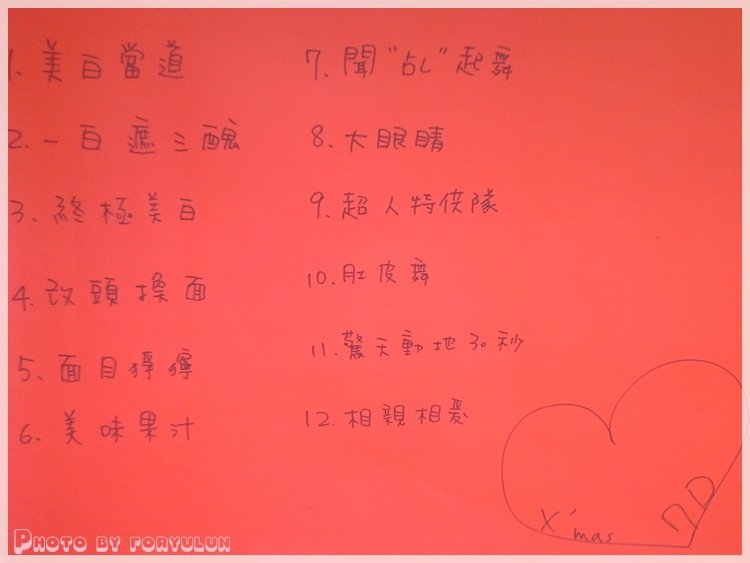 1. 美白當道
2. 一白遮三醜
3. 終極美白
4. 改頭換面
5. 面目猙獰
6. 美味果汁
7. 聞"乩"起舞
8. 大眼睛
9. 超人特偵隊
10. 肚皮舞
11. 驚天動地30秒
12. 相親相愛
X'mas
PHOTO BY FORYULUN